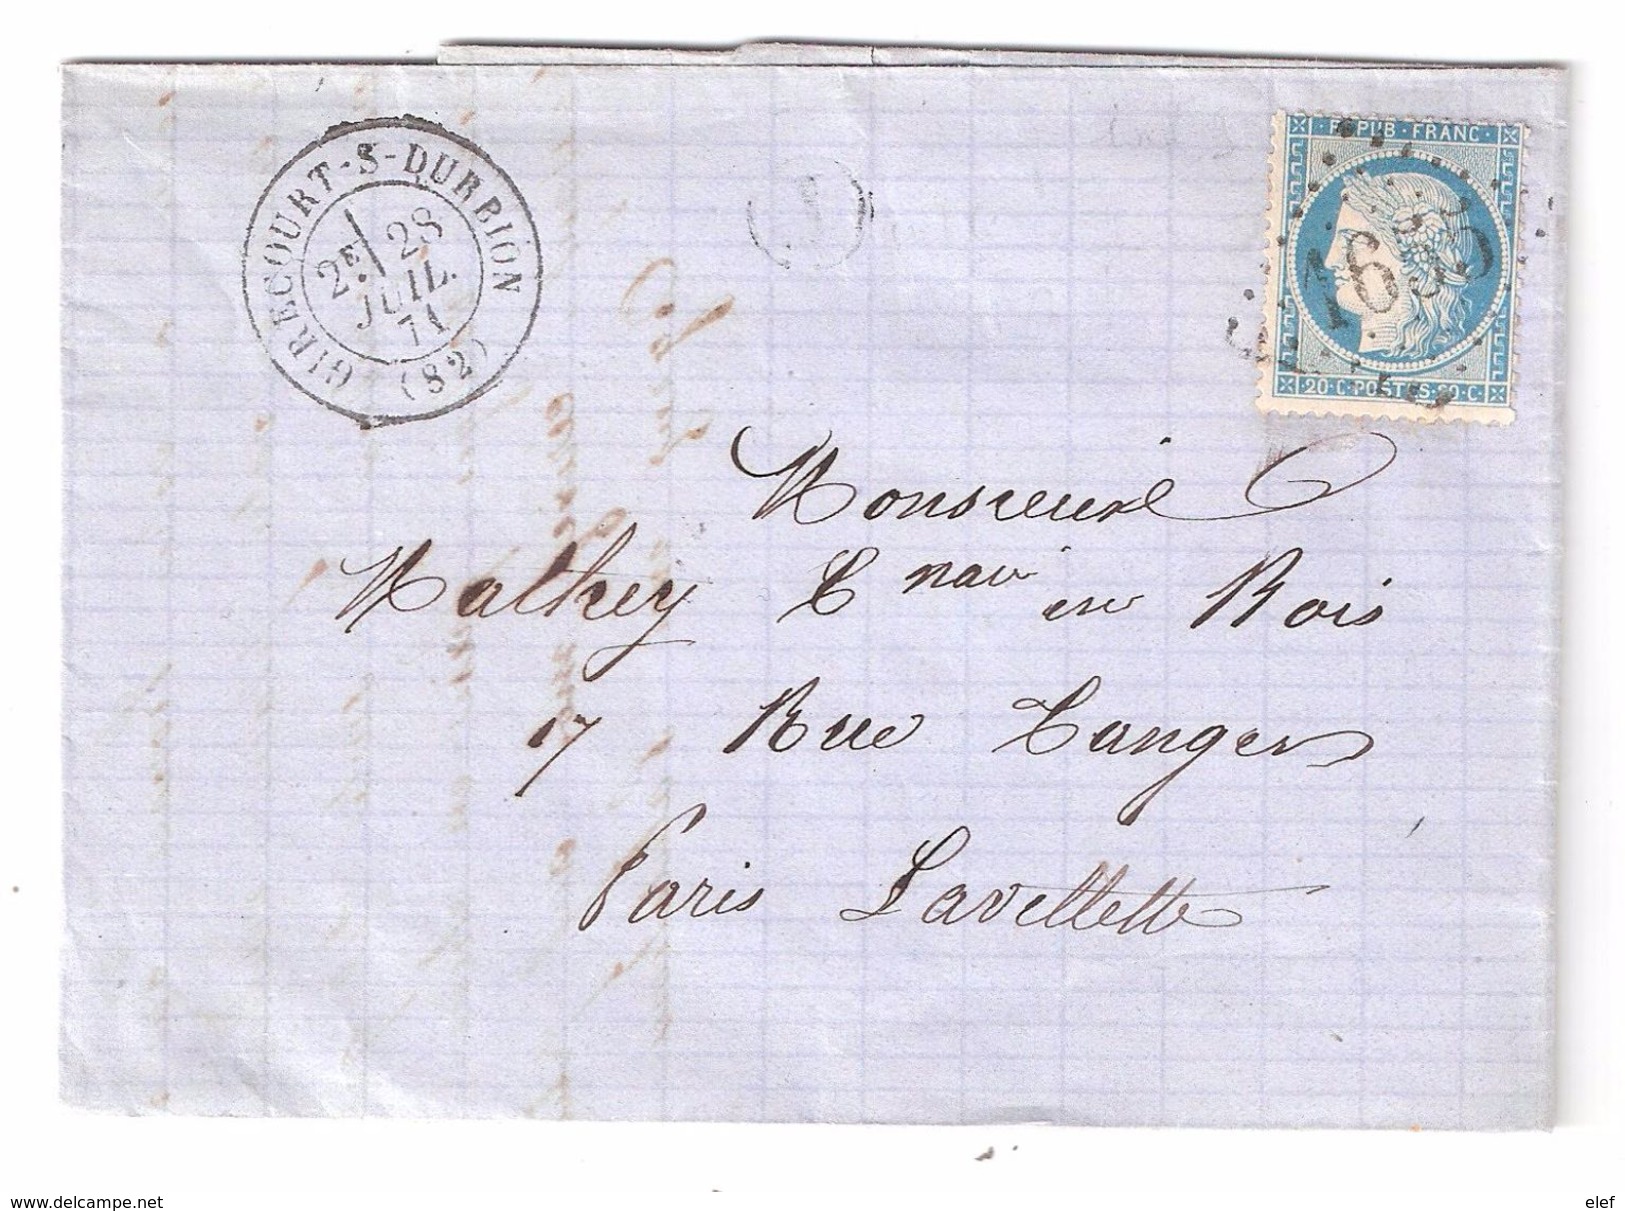 GIRECOURT-S-DURBION
2E 28
JUIL.
71
(82)
REPUB·FRANC·
20·C·POSTES·20·C·
Monsieur
Mathey Cnau en Bois
17 Rue Tanger
Paris Lavillette
www.delcampe.net
elef